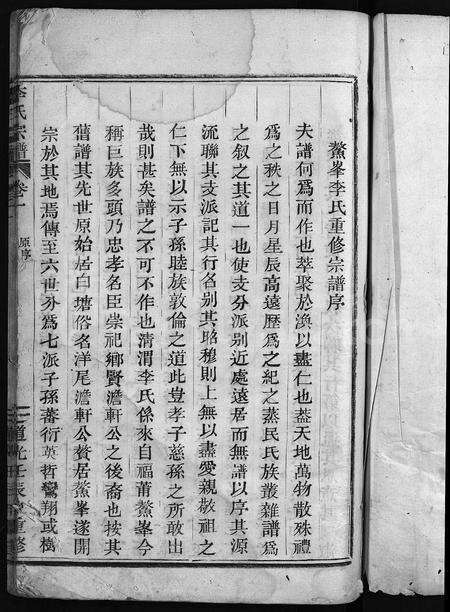 鰲峯李氏重修宗譜序
夫譜何爲而作也萃聚於渙以盡仁也蓋天地萬物散殊禮
爲之秩之日月星辰高遠歷爲之紀之蒸民氏族叢雜譜爲
之叙之其道一也使支分派别近處遠居而無譜以序其源
流聯其支派記其行名别其昭穆則上無以盡愛親敬祖之
仁下無以示子孫睦族敦倫之道此豈孝子慈孫之所敢出
哉則甚矣譜之不可不作也清渭李氏係來自福莆鰲峯今
稱巨族多頭乃忠孝名臣崇祀鄉賢澹軒公之後裔也按其
舊譜其先世原始居白塘俗名洋尾澹軒公贅居鰲峯遂開
宗於其地焉傳至六世分爲七派子孫蕃衍英哲鸞翔或樹
李氏宗譜
卷一
原序
道光壬辰重修